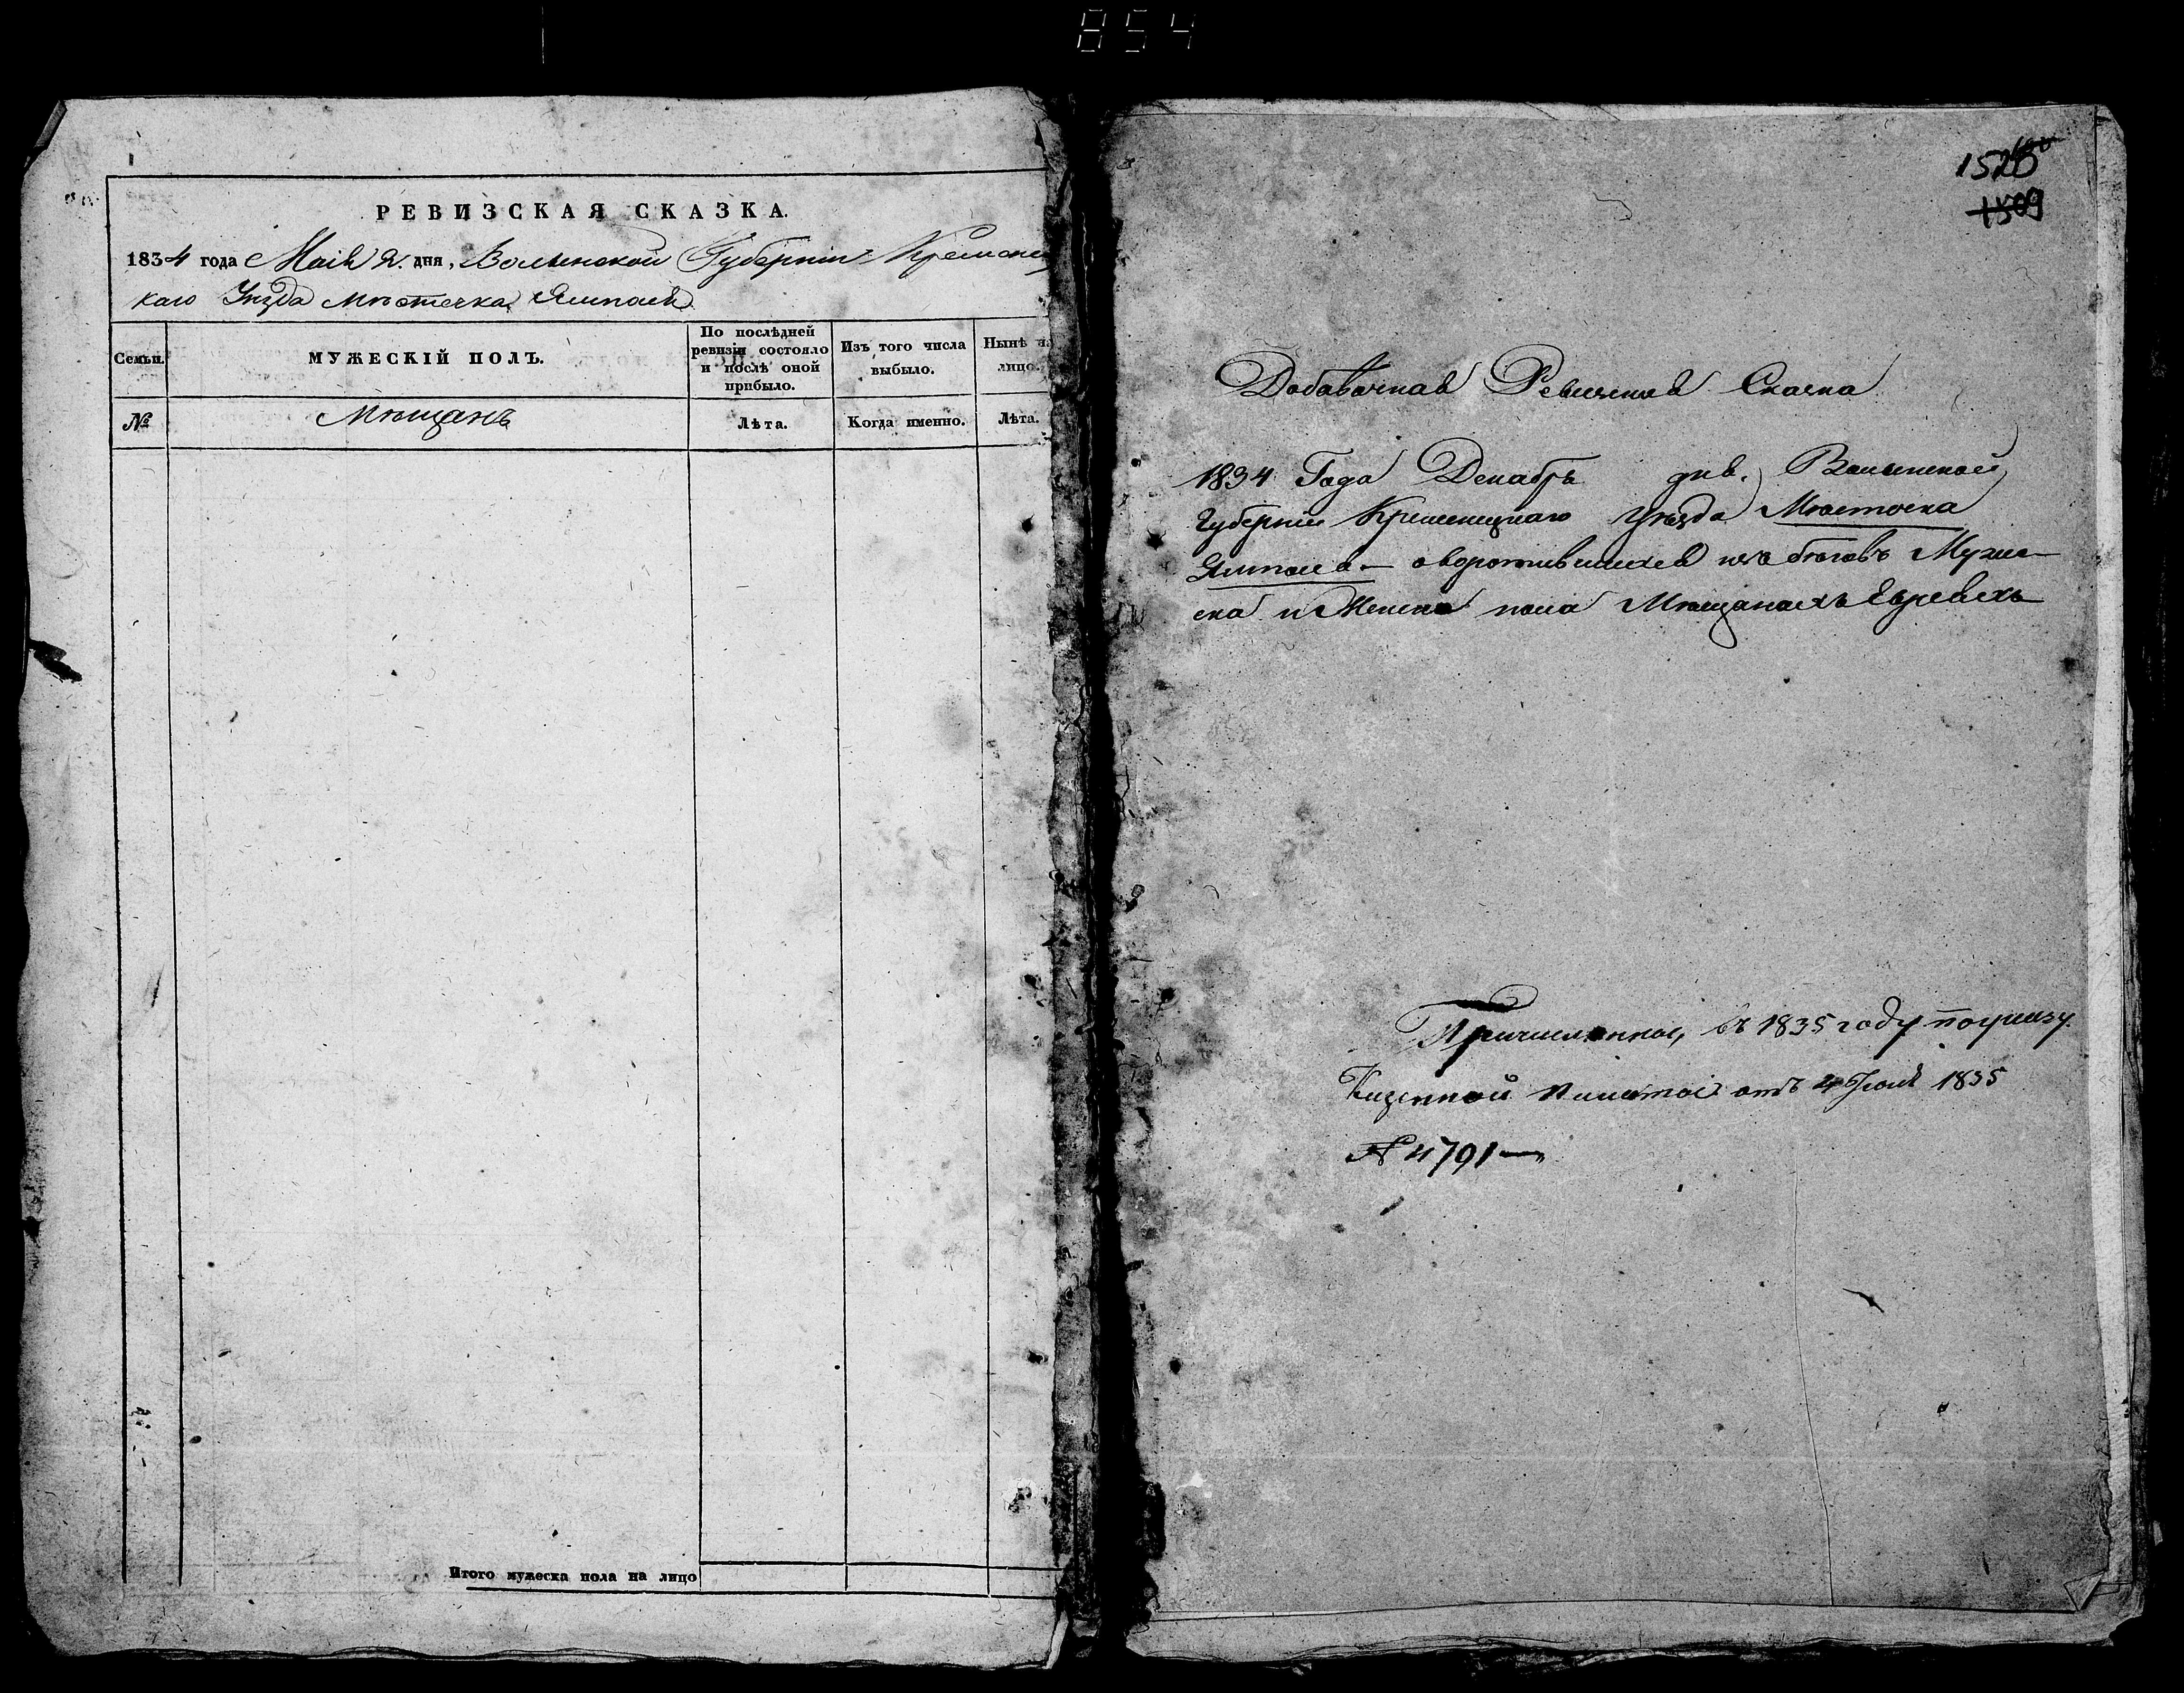 854
РЕВИЗСКАЯ СКАЗКА.
1834 года Маія 2. дня, Волынской Губерніи Кременец
каго Уѣзда мѣстечка Ямполя
Семьи.
МУЖЕСКІЙ ПОЛЪ.
По послѣдней ревизіи состояло и послѣ оной прибыло.
Изъ того числа выбыло.
Нынѣ на лицо.
№
Мѣщанъ
Лѣта.
Когда именно.
Лѣта.
Итого мужеска пола на лицо
1520
1509
Добавочная Ревизская Сказка
1834 Года Декабрь дня, Волынской
Губерніи Кременецкаго уѣзда Мѣсточка
Ямполя — оворотившихся изъ беговъ Мужес-
ска и Женска пола Мѣщанахъ Евреяхъ
Причисленная, въ 1835 году по указу
Казенной Палаты отъ 4 1835
№ 4791 —